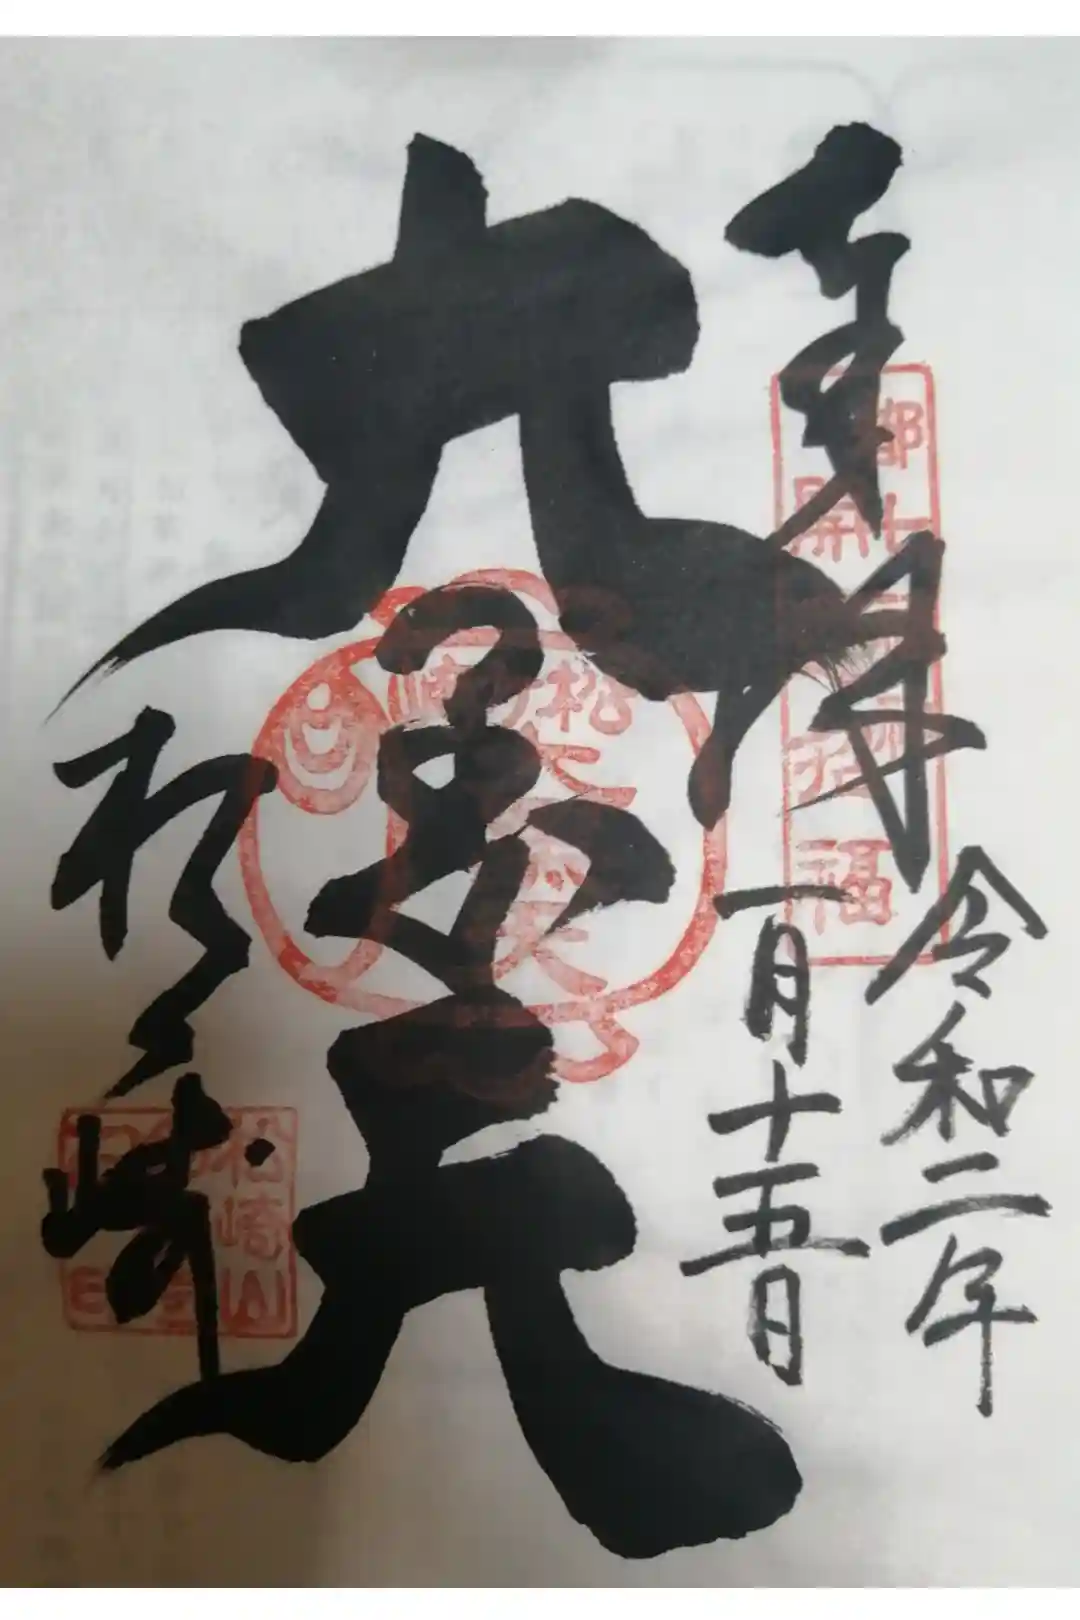 奉拝
令和二年
一月十五日
大黒天
松ヶ崎
都七
開運招福
松ヶ崎
大黒天
松崎山